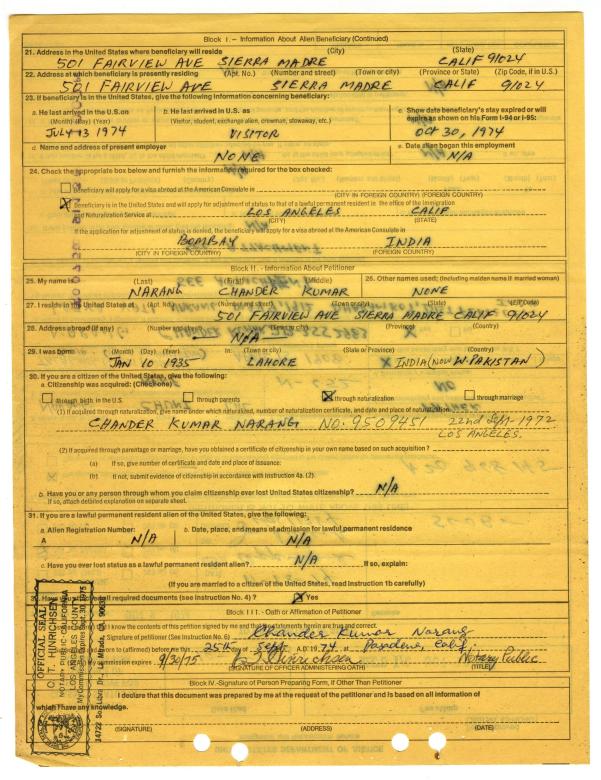 Block I. - Information About Alien Beneficiary (Continued)
21. Address in the United States where beneficiary will reside (City) (State)
501 FAIRVIEW AVE SIERRA MADRE CALIF 91024
22. Address at which beneficiary is presently residing (Apt. No.) (Number and street) (Town or city) (Province or State) (Zip Code, if in U.S.)
501 FAIRVIEW AVE SIERRA MADRE CALIF 91024
23. If beneficiary is in the United States, give the following information concerning beneficiary:
a. He last arrived in the U.S. on (Month) (Day) (Year)
JULY 13 1974
b. He last arrived in U.S. as (Visitor, student, exchange alien, crewman, stowaway, etc.)
VISITOR
c. Show date beneficiary's stay expired or will expire as shown on his Form I-94 or I-95:
OCT 30, 1974
d. Name and address of present employer
NONE
e. Date alien began this employment
N/A
24. Check the appropriate box below and furnish the information required for the box checked:
Beneficiary will apply for a visa abroad at the American Consulate in
(CITY IN FOREIGN COUNTRY) (FOREIGN COUNTRY)
X Beneficiary is in the United States and will apply for adjustment of status to that of a lawful permanent resident in the office of the Immigration
and Naturalization Service at LOS ANGELES CALIF
(CITY) (STATE)
If the application for adjustment of status is denied, the beneficiary will apply for a visa abroad at the American Consulate in
BOMBAY INDIA
(CITY IN FOREIGN COUNTRY) (FOREIGN COUNTRY)
Block II. - Information About Petitioner
25. My name is (Last) (First) (Middle)
NARANG CHANDER KUMAR
26. Other names used: (including maiden name if married woman)
NONE
27. I reside in the United States at (Apt. No.) (Number and street) (Town or city) (State) (ZIP Code)
501 FAIRVIEW AVE SIERRA MADRE CALIF 91024
28. Address abroad (if any) (Number and street) (Town or city) (Province) (Country)
N/A
29. I was born: (Month) (Day) (Year) In: (Town or city) (State or Province) (Country)
JAN 10 1935 LAHORE X INDIA (NOW W. PAKISTAN)
30. If you are a citizen of the United States, give the following:
a. Citizenship was acquired: (Check one)
through birth in the U.S. through parents X through naturalization through marriage
(1) If acquired through naturalization, give name under which naturalized, number of naturalization certificate, and date and place of naturalization
CHANDER KUMAR NARANG NO. 9509451 22nd Sept-1972
LOS ANGELES.
(2) If acquired through parentage or marriage, have you obtained a certificate of citizenship in your own name based on such acquisition?
(a) If so, give number of certificate and date and place of issuance:
(b) If not, submit evidence of citizenship in accordance with Instruction 4a. (2).
b. Have you or any person through whom you claim citizenship ever lost United States citizenship? N/A
If so, attach detailed explanation on separate sheet.
31. If you are a lawful permanent resident alien of the United States, give the following:
a. Alien Registration Number:
A N/A
b. Date, place, and means of admission for lawful permanent residence
N/A
c. Have you ever lost status as a lawful permanent resident alien? N/A If so, explain:
(If you are married to a citizen of the United States, read Instruction 1b carefully)
all required documents (see Instruction No. 4)? X Yes
Block III. - Oath or Affirmation of Petitioner
I know the contents of this petition signed by me and that the statements herein are true and correct.
Signature of petitioner (See Instruction No. 6) Chander Kumar Narang
to (affirmed) before me this 25th day of Sept, A.D. 1974, at Pasadena, Calif.
My commission expires 9/30/75 O T Hinrichsen Notary Public
(SIGNATURE OF OFFICER ADMINISTERING OATH) (TITLE)
OFFICIAL SEAL
O. T. HINRICHSEN
NOTARY PUBLIC-CALIFORNIA
LOS ANGELES COUNTY
My Commission Expires Sept. 30, 1975
14722 San Dr., La Mirada, CA. 90638
Block IV. - Signature of Person Preparing Form, If Other Than Petitioner
I declare that this document was prepared by me at the request of the petitioner and is based on all information of
which I have any knowledge.
(SIGNATURE) (ADDRESS) (DATE)